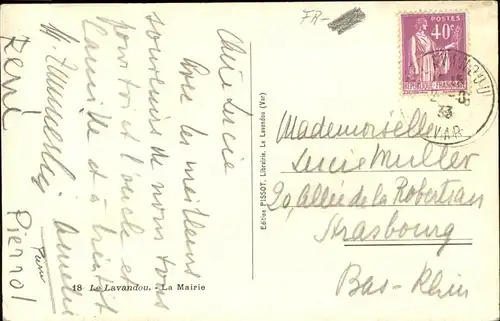 FR-
Chère Lucie
Avec les meilleurs
souvenirs de nous tous
pour toi et l'oncle et
Camille et à bientôt
Amélie
René
Pierrot
18 Le Lavandou. - La Mairie
Edition PISSOT, Librairie, Le Lavandou (Var)
POSTES
40c
REPUBLIQUE FRANÇAISE
33
VAR
Mademoiselle
Lucie Muller
20, Allée de la Robertsau
Strasbourg
Bas-Rhin